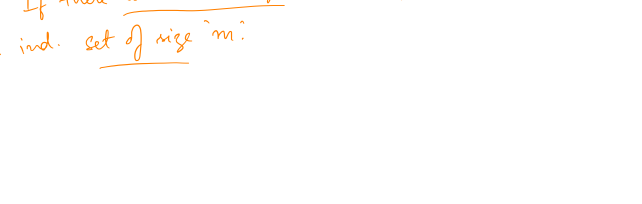 If there
ind. set of size "m".